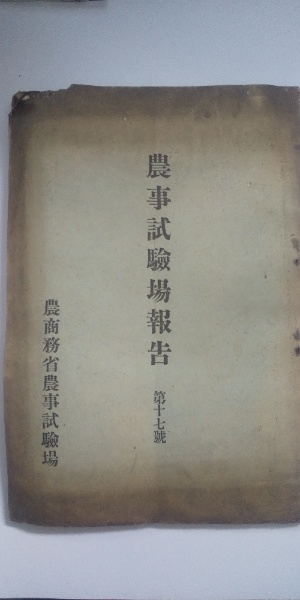 農事試驗場報告
第十七號
農商務省農事試驗場